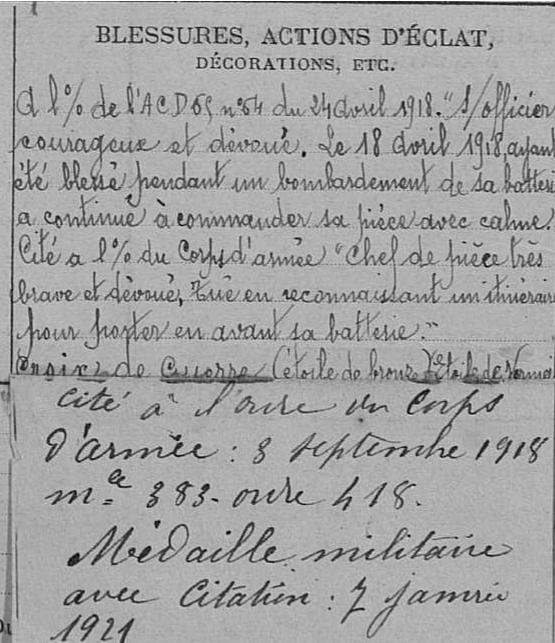 BLESSURES, ACTIONS D'ÉCLAT,
DÉCORATIONS, ETC.
A l'% de l'ACD 65 n° 64 du 24 avril 1918. "S/officier
courageux et dévoué. Le 18 avril 1918, ayant
été blessé pendant un bombardement de sa batteri
a continué à commander sa pièce avec calme.
Cité a l'% du Corps d'armée "Chef de pièce très
brave et dévoué, Tué en reconnaissant un itinérair
pour porter en avant sa batterie."
Croix de Guerre (étoile de bronze) étoile de
Cité à l'ordre du Corps
d'armée : 3 septembre 1918
m^le 383 - ordre 418.
Médaille militaire
avec Citation : 7 janvier
1921